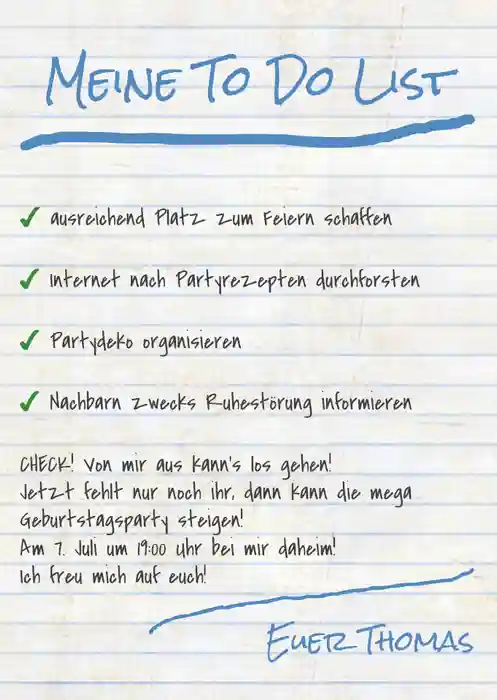 MEINE TO DO LIST
✓ ausreichend Platz zum Feiern schaffen
✓ Internet nach Partyrezepten durchforsten
✓ Partydeko organisieren
✓ Nachbarn zwecks Ruhestörung informieren
CHECK! Von mir aus kann's los gehen!
Jetzt fehlt nur noch ihr, dann kann die mega
Geburtstagsparty steigen!
Am 7. Juli um 19:00 Uhr bei mir daheim!
Ich freu mich auf euch!
EUER THOMAS